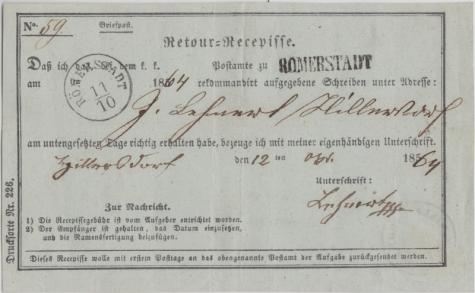 No. 59 Briefpost.
Retour-Recepisse.
Daß ich das bei dem k. k. Postamte zu RÖMERSTADT
RÖMERSTADT 11/10
am 1864 rekommandirt aufgegebene Schreiben unter Adresse:
J. Lehnert Hillersdorf
am untengesetzten Tage richtig erhalten habe, bezeuge ich mit meiner eigenhändigen Unterschrift.
Hillersdorf den 12 ten Okt. 1864
Unterschrift:
Lehnert
Zur Nachricht.
1) Die Recepissegebühr ist vom Aufgeber entrichtet worden.
2) Der Empfänger ist gehalten, das Datum einzusetzen,
und die Namensfertigung beizufügen.
Dieses Recepisse wolle mit erstem Posttage an das obengenannte Postamt der Aufgabe zurückgesendet werden.
Drucksorte Nr. 226.